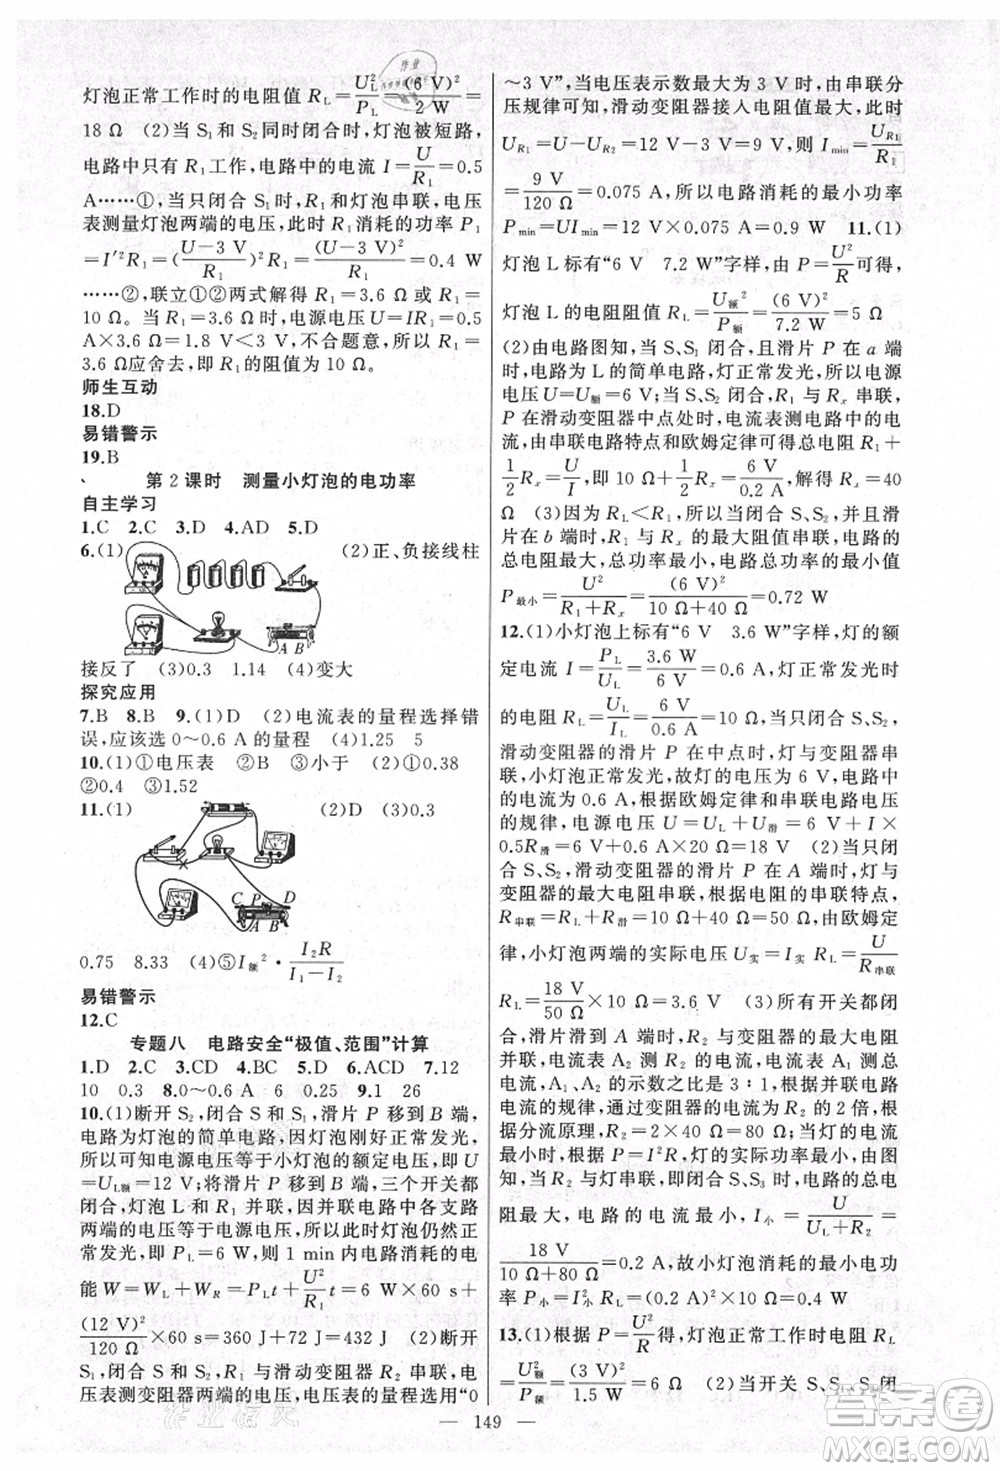 灯泡正常工作时的电阻值 R_L=U_L²/P_L=(6 V)²/2 W=
18 Ω　(2)当 S₁ 和 S₂ 同时闭合时,灯泡被短路,
电路中只有 R₁ 工作,电路中的电流 I=U/R₁=0.5
A……①,当只闭合 S₁ 时,R₁ 和灯泡串联,电压
表测量灯泡两端的电压,此时 R₁ 消耗的功率 P₁
=I′²R₁=((U-3 V)/R₁)²R₁=(U-3 V)²/R₁=0.4 W
……②,联立①②两式解得 R₁=3.6 Ω 或 R₁=
10 Ω。当 R₁=3.6 Ω 时,电源电压 U=IR₁=0.5
A×3.6 Ω=1.8 V<3 V,不合题意,所以 R₁=
3.6 Ω应舍去,即 R₁ 的阻值为 10 Ω。
师生互动
18.D
易错警示
19.B
第 2 课时　测量小灯泡的电功率
自主学习
1.C　2.C　3.D　4.AD　5.D
6.(1)　(2)正、负接线柱
A B
接反了　(3)0.3　1.14　(4)变大
探究应用
7.B　8.B　9.(1)D　(2)电流表的量程选择错
误,应该选 0～0.6 A 的量程　(4)1.25　5
10.(1)①电压表　②B　③小于　(2)①0.38
②0.4　③1.52
11.(1)　(2)D　(3)0.3
C P D
A B
0.75　8.33　(4)⑤I额²·I₂R/(I₁-I₂)
易错警示
12.C
专题八　电路安全“极值、范围”计算
1.D　2.C　3.CD　4.BC　5.D　6.ACD　7.12
10　0.3　8.0～0.6 A　6　0.25　9.1　26
10.(1)断开 S₂,闭合 S 和 S₁,滑片 P 移到 B 端,
电路为灯泡的简单电路,因灯泡刚好正常发光,
所以可知电源电压等于小灯泡的额定电压,即 U
=U_L额=12 V;将滑片 P 移到 A 端,三个开关都
闭合,灯泡 L 和 R₁ 并联,因并联电路中各支路
两端的电压等于电源电压,所以此时灯泡仍然正
常发光,即 P_L=6 W,则 1 min 内电路消耗的电
能 W=W_L+W_R=P_L t+U²/R₁ t=6 W×60 s+
(12 V)²/120 Ω×60 s=360 J+72 J=432 J　(2)断开
S₁,闭合 S 和 S₂,R₁ 与滑动变阻器 R₂ 串联,电
压表测变阻器两端的电压,电压表的量程选用“0
～3 V”,当电压表示数最大为 3 V 时,由串联分
压规律可知,滑动变阻器接入电阻值最大,此时
U_R1=U-U_R2=12 V-3 V=9 V,则 I_min=U_R1/R₁
=9 V/120 Ω=0.075 A,所以电路消耗的最小功率
P_min=UI_min=12 V×0.075 A=0.9 W　11.(1)
灯泡 L 标有“6 V　7.2 W”字样,由 P=U²/R可得,
灯泡 L 的电阻阻值 R_L=U额²/P额=(6 V)²/7.2 W=5 Ω
(2)由电路图知,当 S、S₁ 闭合,且滑片 P 在 a 端
时,电路为 L 的简单电路,灯正常发光,所以电源
电压 U=U额=6 V;S、S₂ 闭合,R₁ 与 Rₓ 串联,
P 在滑动变阻器中点处时,电流表测电路中的电
流,由串联电路特点和欧姆定律可得总电阻 R₁+
1/2 Rₓ=U/I,所以 10 Ω+1/2 Rₓ=6 V/0.2 A,解得 Rₓ=40
Ω　(3)因为 R_L<R₁,所以当闭合 S、S₂,且滑片
P 在 b 端时,R₁ 与 Rₓ 的最大阻值串联,电路的
总电阻最大,总功率最小,所以总功率的最小值
P最小=U²/(R₁+Rₓ)=(6 V)²/(10 Ω+40 Ω)=0.72 W
12.(1)小灯泡上标有“6 V　3.6 W”字样,灯的额
定电流 I=P_L/U_L=3.6 W/6 V=0.6 A,灯正常发光时
的电阻 R_L=U_L/I=6 V/0.6 A=10 Ω;当只闭合 S、S₂,
滑动变阻器的滑片 P 在中点时,灯与变阻器串
联,小灯泡正常发光,故灯的电压为 6 V,电路中的
电流为 0.6 A,根据欧姆定律和串联电路电压
的规律,电源电压 U=U_L+U滑=6 V+I×
0.5R滑=6 V+0.6 A×20 Ω=18 V　(2)当只闭合
S、S₂,滑动变阻器的滑片 P 在 A 端时,灯与
变阻器的最大电阻串联,根据电阻的串联特点,
R串联=R_L+R滑=10 Ω+40 Ω=50 Ω,由欧姆定
律,小灯泡两端的实际电压 U实=I实 R_L=U/R串联
R_L=18 V/50 Ω×10 Ω=3.6 V　(3)所有开关都闭
合,滑片滑到 A 端时,R₂ 与变阻器的最大电阻
并联,电流表 A₂ 测 R₂ 的电流,电流表 A₁ 测总
电流,A₁、A₂ 的示数之比为 3∶1,根据并联电路
电流的规律,通过变阻器的电流为 R₂ 的 2 倍,根据
分流原理,R₂=2×40 Ω=80 Ω;当电路的电流
最小时,根据 P=I²R,灯的功率最小,由图知,当
L 与 R₂ 串联时,即只闭合 S、S₃ 时,电路的总电
阻最大,电路的电流最小,I小=U/(U_L+R₂)=
18 V/(10 Ω+80 Ω)=0.2 A,故小灯泡消耗的最小电功
率 P小=I小² R_L=(0.2 A)²×10 Ω=0.4 W
13.(1)根据 P=U²/R,得灯泡正常工作时电阻 R_L
=U额²/P额=(3 V)²/1.5 W=6 Ω　(2)当开关 S、S₁、S₂ 闭
— 149 —
答案圈
MXQE.COM